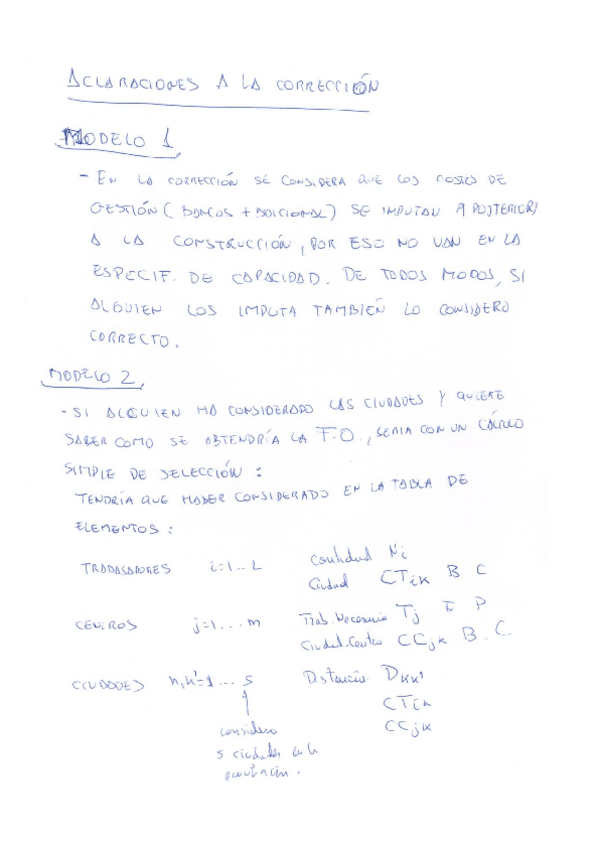 ACLARACIONES A LA CORRECCIÓN
MODELO 1
- EN LA CORRECCIÓN SE CONSIDERA QUE LOS COSTES DE
GESTIÓN (BANCOS + ADICIONAL) SE IMPUTAN A POSTERIORI
A LA CONSTRUCCIÓN, POR ESO NO VAN EN LA
ESPECIF. DE CAPACIDAD. DE TODOS MODOS, SI
ALGUIEN LOS IMPUTA TAMBIÉN LO CONSIDERO
CORRECTO.
MODELO 2
- SI ALGUIEN HA CONSIDERADO LAS CIUDADES Y QUIERE
SABER COMO SE OBTENDRÍA LA F.O., SERIA CON UN CÁLCULO
SIMPLE DE SELECCIÓN :
TENDRÍA QUE HABER CONSIDERADO EN LA TABLA DE
ELEMENTOS :
TRABAJADORES i=1...L Cantidad Ni
Ciudad CTik B C
CENTROS j=1...m Trab. Necesarios Tj E P
Ciudad-Centro CCjk B. C.
CIUDADES k,k'=1...s Distancia Dkk'
CTik
CCjk
considero
s ciudades en la
provincia.